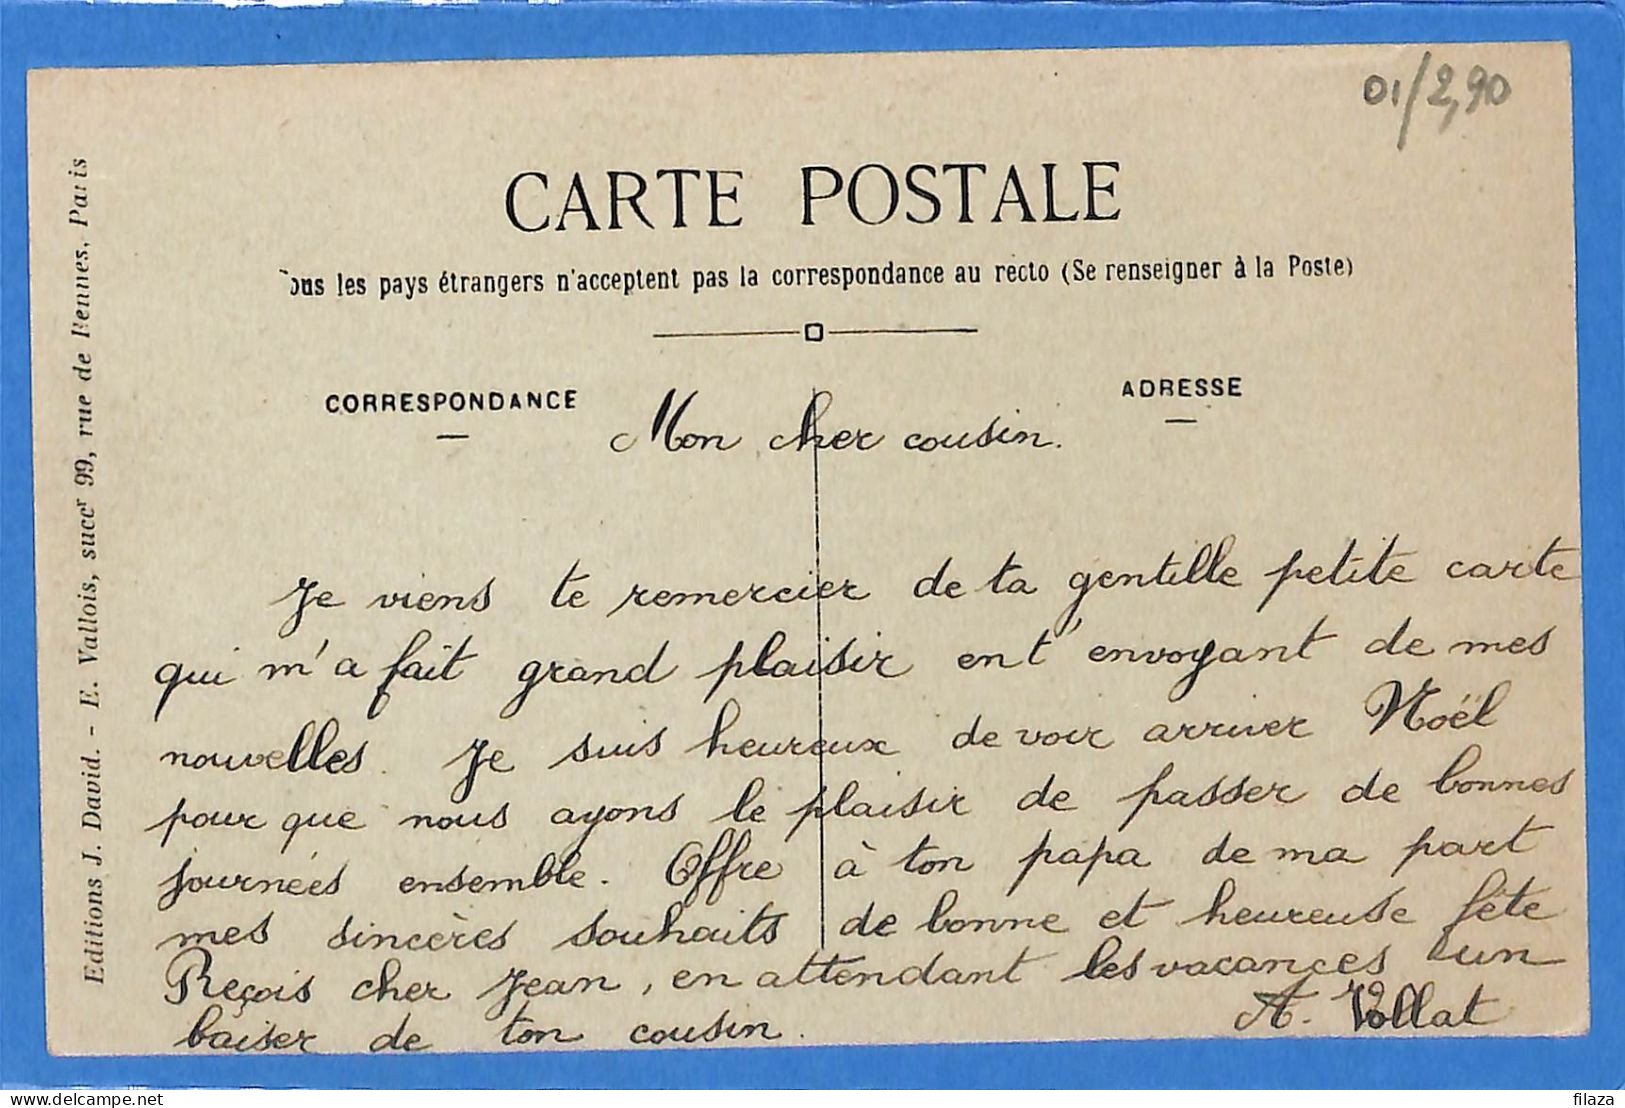 01/2,90
CARTE POSTALE
Tous les pays étrangers n'acceptent pas la correspondance au recto (Se renseigner à la Poste)
CORRESPONDANCE
ADRESSE
Mon cher cousin.
Je viens te remercier de ta gentille petite carte
qui m'a fait grand plaisir en t'envoyant de mes
nouvelles. Je suis heureux de voir arriver Noël
pour que nous ayons le plaisir de passer de bonnes
journées ensemble. Offre à ton papa de ma part
mes sincères souhaits de bonne et heureuse fête
Reçois cher Jean, en attendant les vacances un
baiser de ton cousin.
A. Vollat
Editions J. David. - E. Vallois, succr 99, rue de Rennes, Paris
delcampe.net
filaza